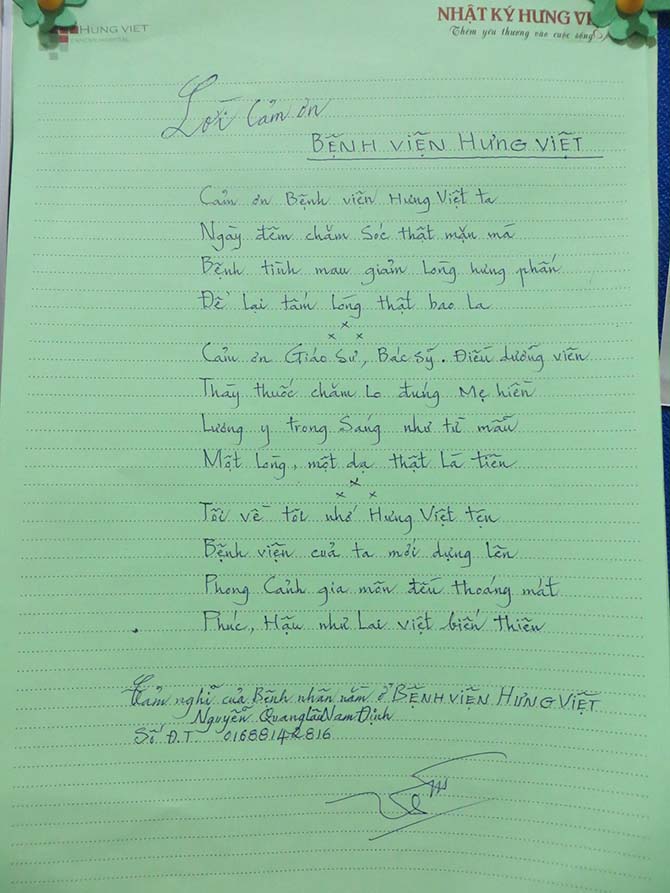 HUNG VIET
CANCER HOSPITAL
NHẬT KÝ HƯNG VI
Thêm yêu thương vào cuộc sống
Lời Cảm ơn
BỆNH VIỆN HƯNG VIỆT
Cảm ơn Bệnh viện Hưng Việt ta
Ngày đêm chăm sóc thật mặn mà
Bệnh tình mau giảm lòng hưng phấn
Để lại tấm lòng thật bao la
x
x x
Cảm ơn Giáo sư, Bác sỹ. Điều dưỡng viên
Thầy thuốc chăm lo đúng Mẹ hiền
Lương y trong sáng như từ mẫu
Một lòng, một dạ thật là tiên
x
x x
Tôi về tôi nhớ Hưng Việt tên
Bệnh viện của ta mới dựng lên
Phong cảnh gia môn đều thoáng mát
Phúc, Hậu như Lai việt biến thiên
Cảm nghĩ của Bệnh nhân nằm ở BỆNH VIỆN HƯNG VIỆT
Nguyễn Quang Nam Định
Số Đ.T 01658142816